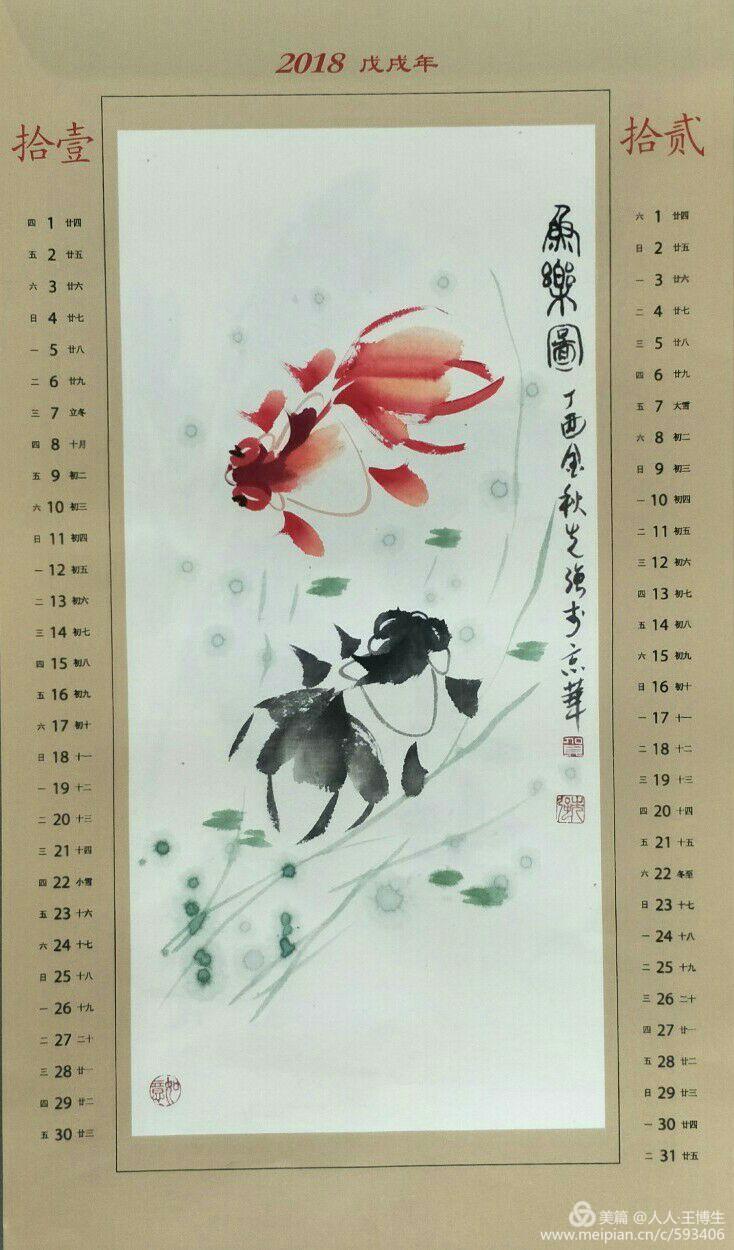 2018 戊戌年
拾壹
四 1 廿四
五 2 廿五
六 3 廿六
日 4 廿七
一 5 廿八
二 6 廿九
三 7 立冬
四 8 十月
五 9 初二
六 10 初三
日 11 初四
一 12 初五
二 13 初六
三 14 初七
四 15 初八
五 16 初九
六 17 初十
日 18 十一
一 19 十二
二 20 十三
三 21 十四
四 22 小雪
五 23 十六
六 24 十七
日 25 十八
一 26 十九
二 27 二十
三 28 廿一
四 29 廿二
五 30 廿三
魚樂圖
丁酉金秋先强於京華
如意
拾贰
六 1 廿四
日 2 廿五
一 3 廿六
二 4 廿七
三 5 廿八
四 6 廿九
五 7 大雪
六 8 初二
日 9 初三
一 10 初四
二 11 初五
三 12 初六
四 13 初七
五 14 初八
六 15 初九
日 16 初十
一 17 十一
二 18 十二
三 19 十三
四 20 十四
五 21 十五
六 22 冬至
日 23 十七
一 24 十八
二 25 十九
三 26 二十
四 27 廿一
五 28 廿二
日 29 廿三
一 30 廿四
二 31 廿五
美篇 @人人·王博生
www.meipian.cn/c/593406